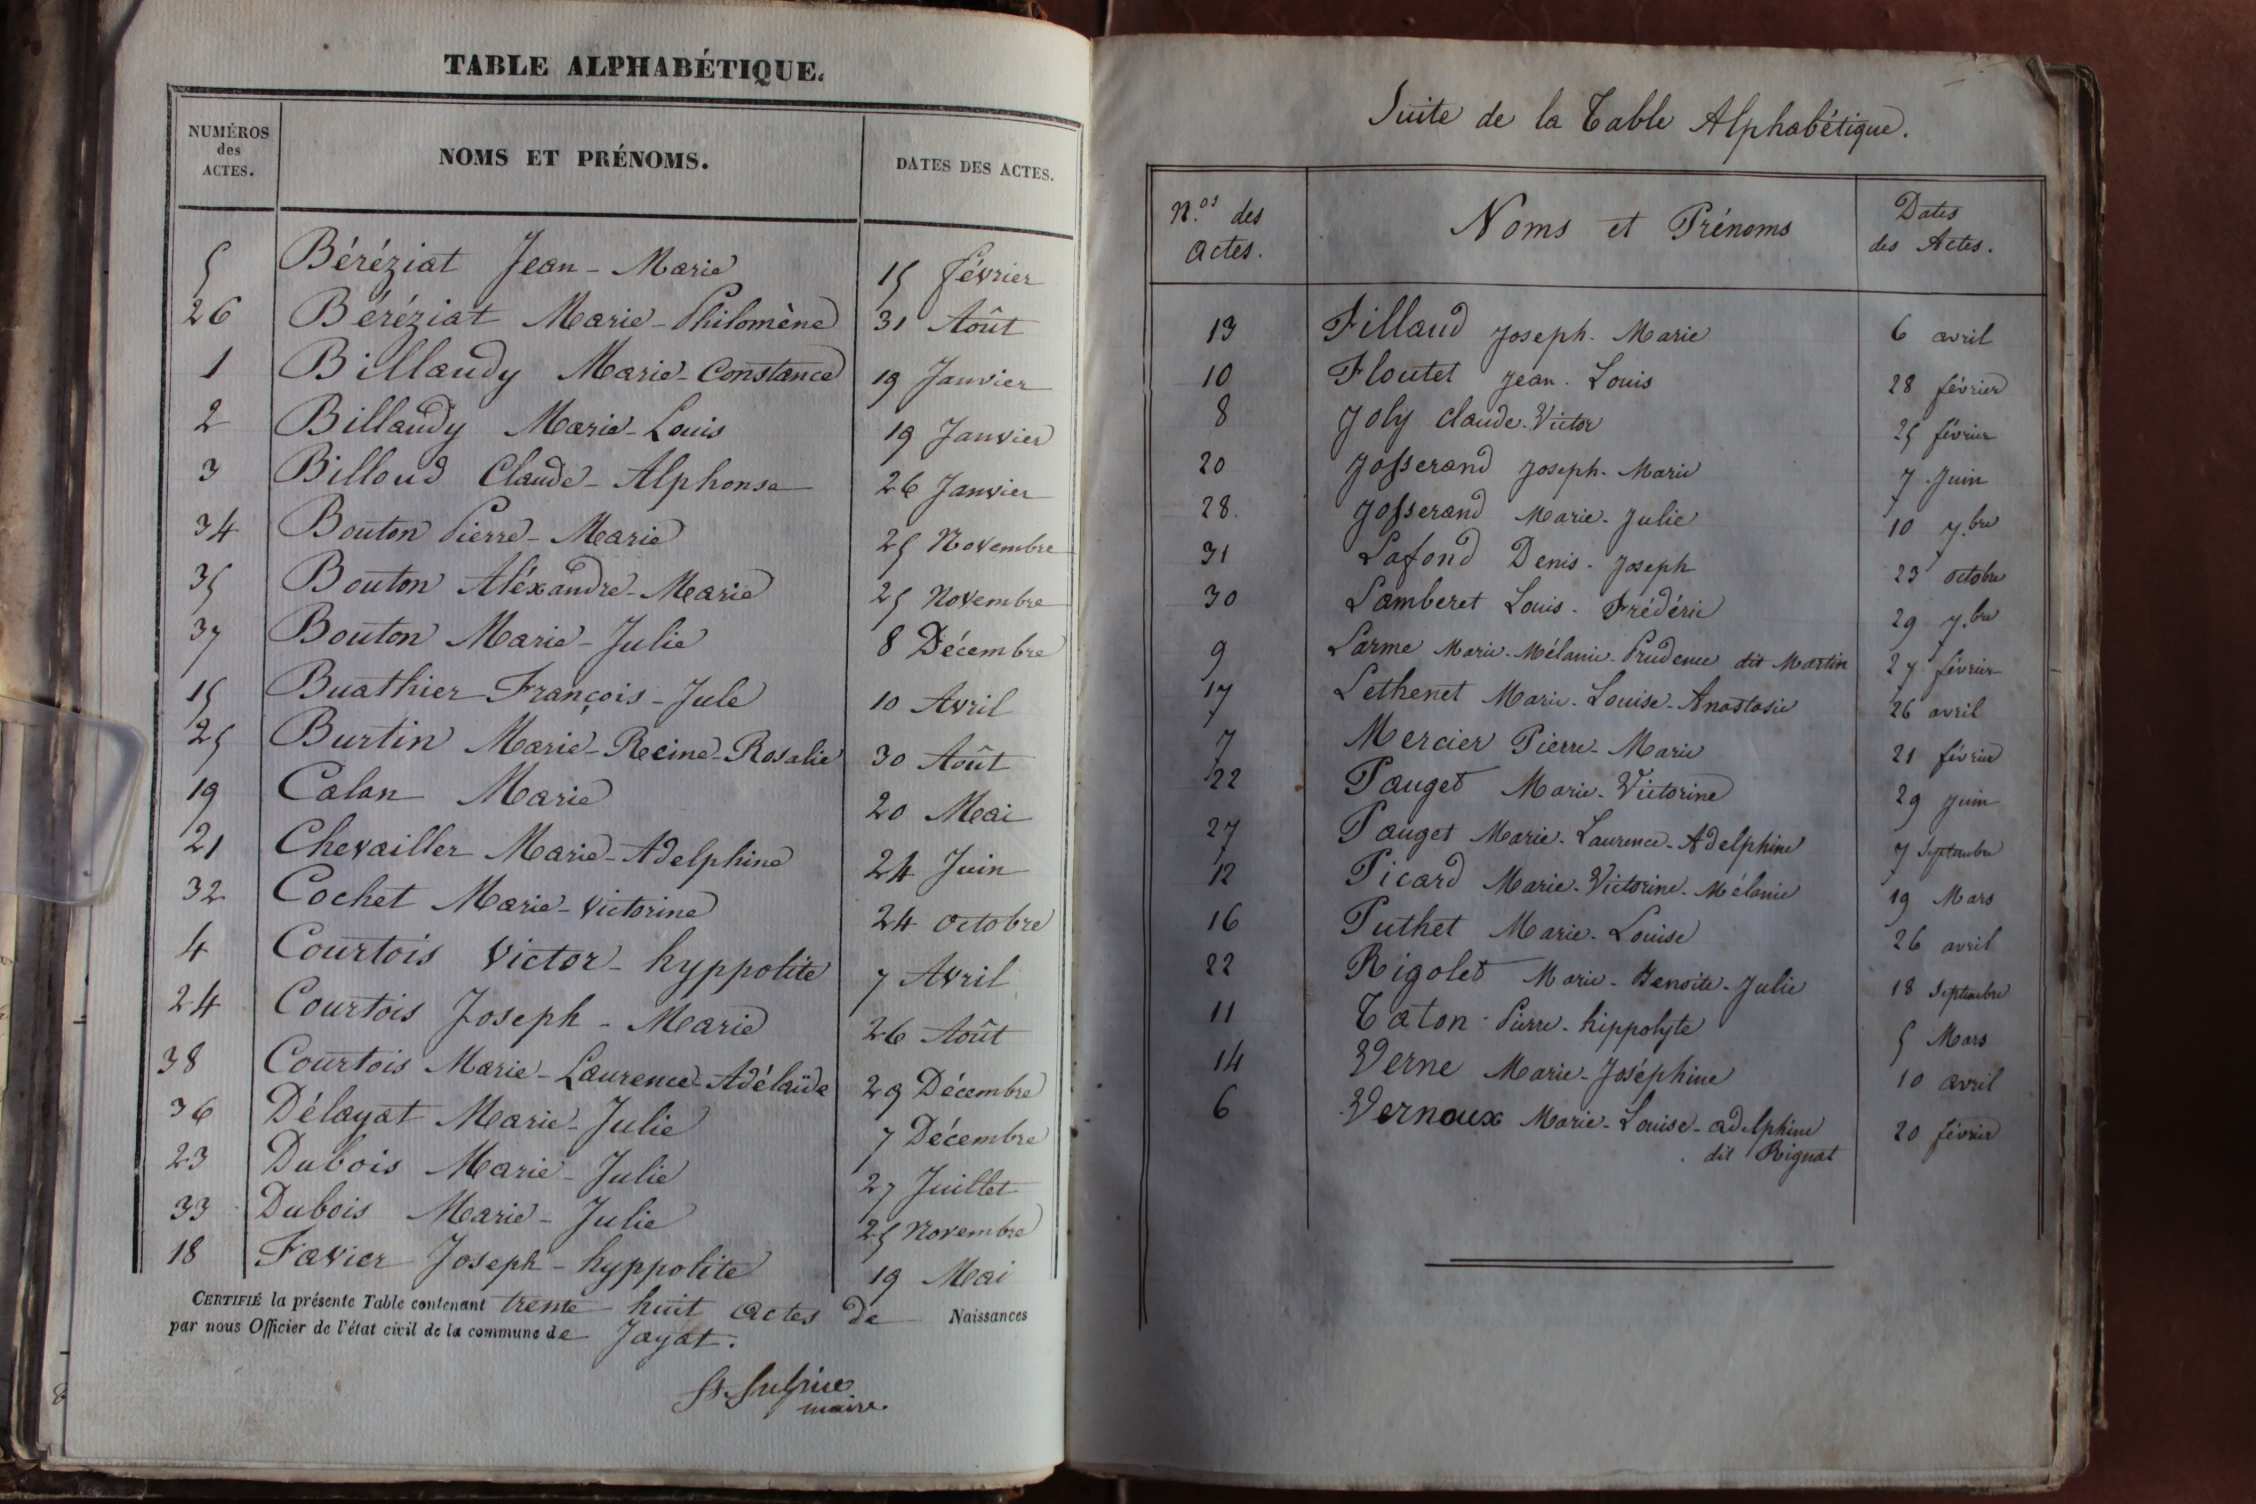 TABLE ALPHABÉTIQUE.
NUMÉROS des ACTES. NOMS ET PRÉNOMS. DATES DES ACTES.
5 Béréziat Jean - Marie 15 février
26 Béréziat Marie - Philomène 31 Août
1 Billaudy Marie - Constance 19 Janvier
2 Billaudy Marie - Louis 19 Janvier
3 Billoud Claude - Alphonse 26 Janvier
34 Bouton Pierre - Marie 25 Novembre
35 Bouton Aléxandre - Marie 25 Novembre
37 Bouton Marie - Julie 8 Décembre
15 Buathier François - Jule 10 Avril
25 Burtin Marie - Reine - Rosalie 30 Août
19 Calan Marie 20 Mai
21 Chevailler Marie - Adelphine 24 Juin
32 Cochet Marie - Victorine 24 octobre
4 Courtois Victor - hyppolite 7 Avril
24 Courtois Joseph - Marie 26 Août
38 Courtois Marie - Laurence - Adélaïde 29 Décembre
36 Délayat Marie - Julie 7 Décembre
23 Dubois Marie - Julie 27 Juillet
33 Dubois Marie - Julie 25 Novembre
18 Favier Joseph - hyppolite 19 Mai
CERTIFIÉ la présente Table contenant trente huit actes de Naissances
par nous Officier de l'état civil de la commune de Jayat.
maire.
Suite de la Table Alphabétique.
N.os des Actes. Noms et Prénoms Dates des Actes.
13 Fillaud Joseph - Marie 6 avril
10 Floutet Jean - Louis 28 février
8 Joly Claude - Victor 25 février
20 Josserand Joseph - Marie 7 Juin
28. Josserand Marie - Julie 10 7.bre
31 Lafond Denis - Joseph 23 octobre
30 Lamberet Louis - Frédéric 29 7.bre
9 Larme Marie - Mélanie - Prudence dit Martin 27 février
17 Lethenet Marie - Louise - Anastasie 26 avril
7 Mercier Pierre - Marie 21 février
22 Pauget Marie - Victorine 29 Juin
27 Pauget Marie - Laurence - Adelphine 7 Septembre
12 Picard Marie - Victorine - Mélanie 19 Mars
16 Puthet Marie - Louise 26 avril
22 Rigolet Marie - Benoite - Julie 18 Septembre
11 Taton Pierre - hippolyte 5 Mars
14 Verne Marie - Joséphine 10 avril
6 Vernoux Marie - Louise - adelphine 20 février
dit Rignat